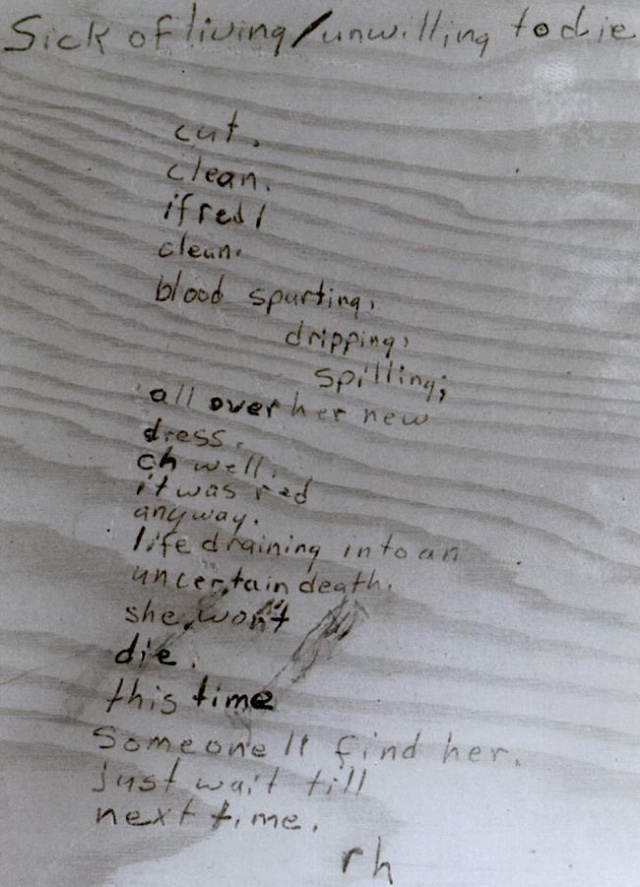 Sick of living/unwilling to die
cut.
clean.
if red/
clean.
blood spurting,
dripping,
spilling;
all over her new
dress.
oh well.
it was red
anyway.
life draining into an
uncertain death.
she won't
die.
this time
Someone'll find her.
just wait till
next time.
rh